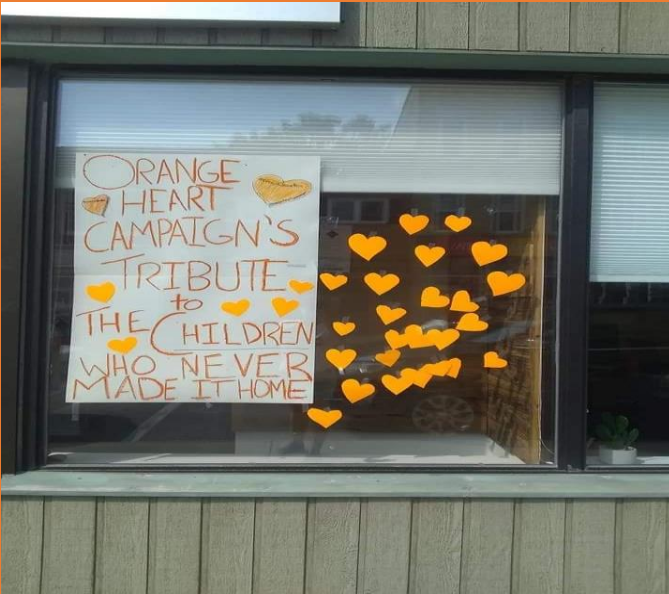 ORANGE
HEART
CAMPAIGN'S
TRIBUTE
to
THE CHILDREN
WHO NEVER
MADE IT HOME